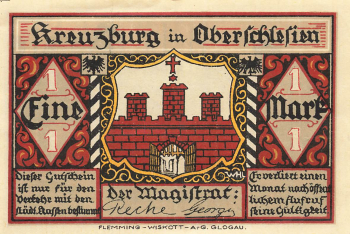 Kreuzburg in Oberschlesien
1 1
Eine Mark
1 1
WH
Dieser Gutschein
ist nur für den
Verkehr mit den
städt. Kassen bestimmt
Der Magistrat:
Reche
Er verliert einen
Monat nach öffent
lichem Aufruf
sein Gültigkeit
FLEMMING-WISKOTT-A=G. GLOGAU.